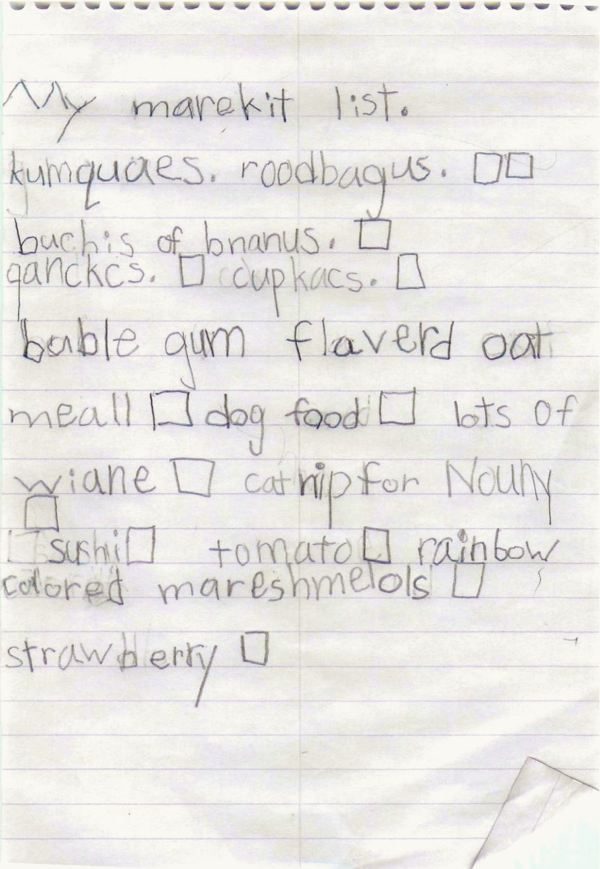 My marekit list.
kumquaes. roodbagus. □□
buchis of bnanus. □
qanckcs. □ cupkacs. □
bable gum flaverd oat
meall □ dog food □ lots of
wiane □ catnip for Nouny
□
sushi □ tomato □ rainbow
colored mareshmelols □
strawberry □